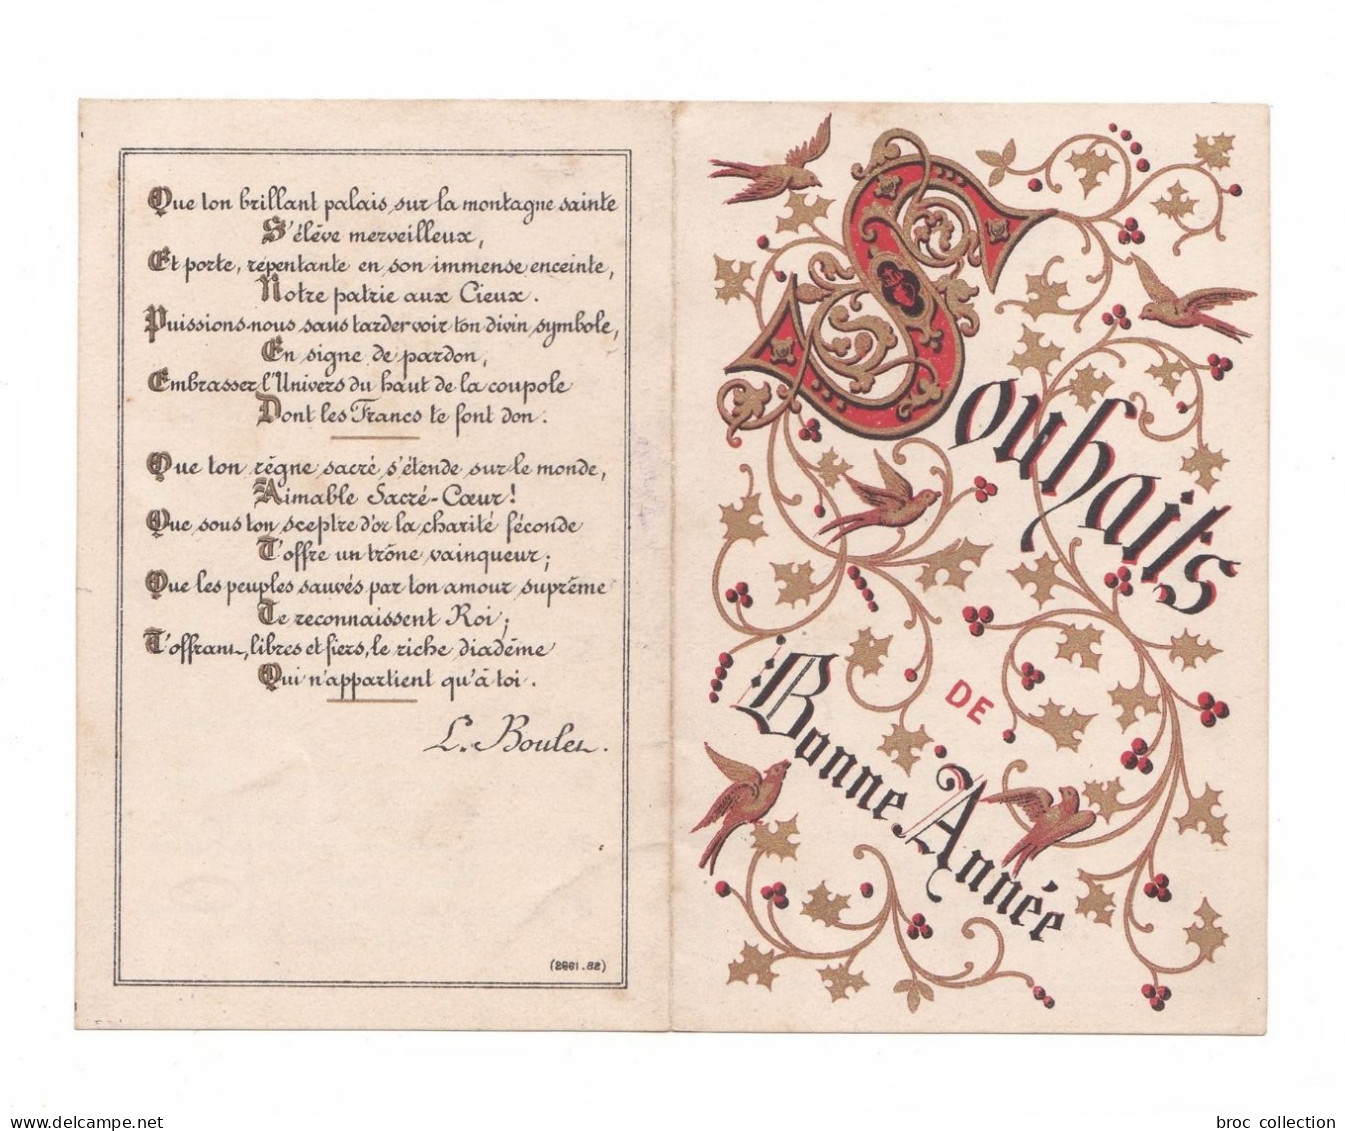 Que ton brillant palais, sur la montagne sainte
S'élève merveilleux,
Et porte, répentante en son immense enceinte,
Notre patrie aux Cieux.
Puissions-nous sans tarder voir ton divin symbole,
En signe de pardon,
Embrasser l'Univers du haut de la coupole
Dont les Francs te font don.
Que ton règne sacré s'étende sur le monde,
Aimable Sacré-Cœur!
Que sous ton sceptre d'or la charité féconde
T'offre un trône vainqueur;
Que les peuples sauvés par ton amour suprême
Te reconnaissent Roi;
T'offrant, libres et fiers, le riche diadème
Qui n'appartient qu'à toi.
L. Boulet.
Souhaits
DE
Bonne Année
broc collection
delcampe.net